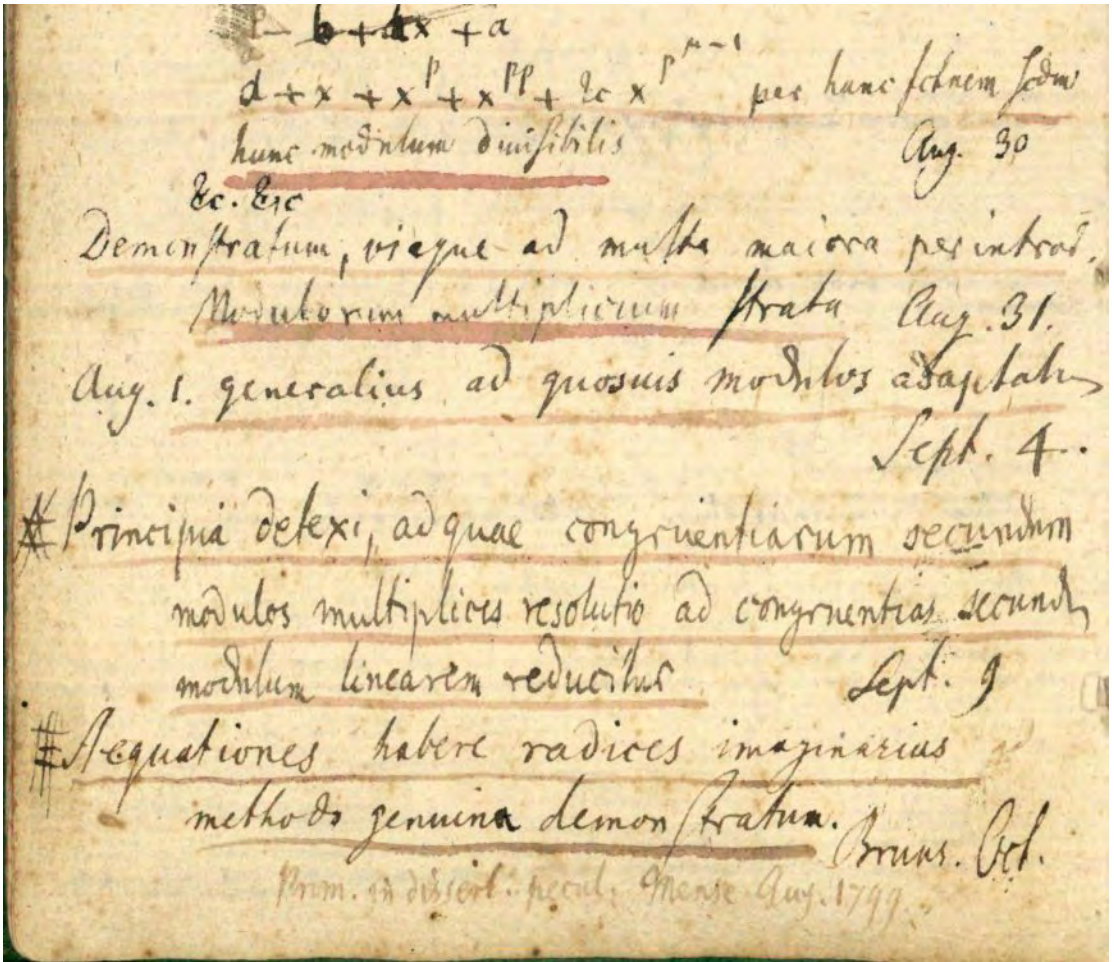 1 - b + dx + a
a + x + x^p + x^pp + &c x^p^μ-1 per hunc fctnem scdm
hunc modulum divisibilis Aug. 30
&c. &c
Demonstratum, viaque ad multa maiora per introd.
Modulorum multiplicium strata Aug. 31.
Aug. 1. generalius ad quosvis modulos adaptatum
Sept. 4.
Principia detexi, ad quae congruentiarum secundum
modulos multiplices resolutio ad congruentias secundum
modulum linearem reducitur Sept. 9
Aequationes habere radices imaginarias
methodo genuina demonstratum. Bruns. Oct.
Prom. in dissert. pecul. Mense Aug. 1799